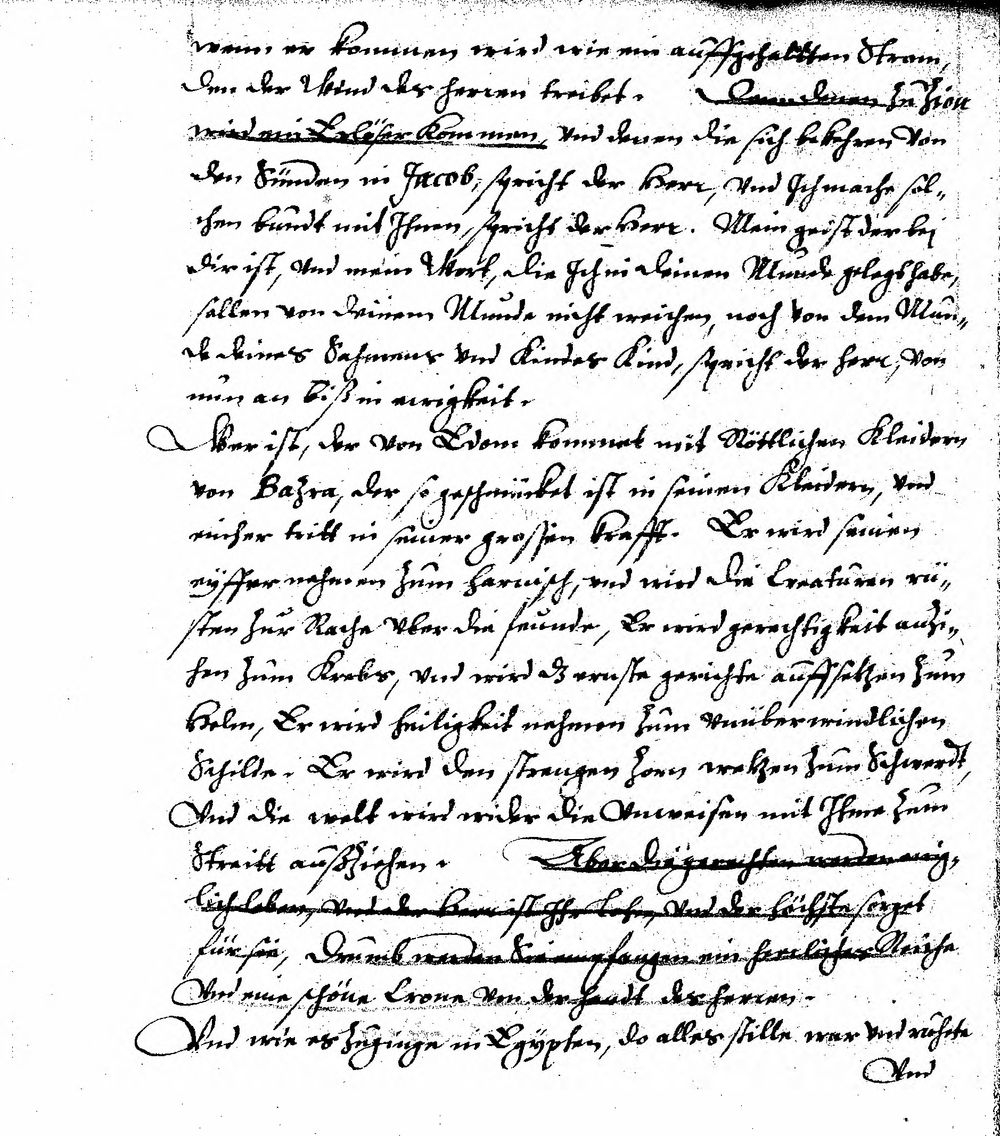 wenn er kommen wird wie ein auffgehaltten Strom,
den der Wind des herren treibet. Denn denen zu Zion
wird ein Erlöser kommen, vnd denen die sich bekehren von
den Sünden in Jacob, spricht der Herr, vnd Ich mache sol-
chen bundt mit Ihnen, spricht der Herr. Mein geist der bei
dir ist, vnd mein Wort, die Ich in deinen Munde gelegt habe,
sollen von deinem Munde nicht weichen, noch von dem Mun-
de deines Sahmens vnd Kindes Kind, spricht der herr, von
nun an biß in ewigkeit.
Wer ist, der von Edom kommet mit Röttlichen Kleidern
von Bazra, der so geschmücket ist in seinen Kleidern, vnd
einher tritt in seiner grossen krafft. Er wird seinen
eyffer nehmen zum harnisch, vnd wird die Creaturen rü-
sten zur Rache vber die feinde, Er wird gerechtigkeit anzi-
hen zum Krebs, vnd wird dz ernste gerichte auffsetzen zum
Helm, Er wird heiligkeit nehmen zum vnüberwindlichen
Schilde. Er wird den strengen zorn wetzen zum Schwerdt,
Vnd die welt wird wider die Vnweisen mit Ihme zum
Streitt außziehen. Aber die gerechten werden ewig-
lich leben, vnd der Herr ist Ihr lohn, vnd der höchste sorget
für sie, Drumb werden Sie empfangen ein herrliches Reiche
Vnd eine schöne Crone von der handt des herren.
Vnd wie es zuginge in Egypten, do alles stille war vnd ruhete
Vnd